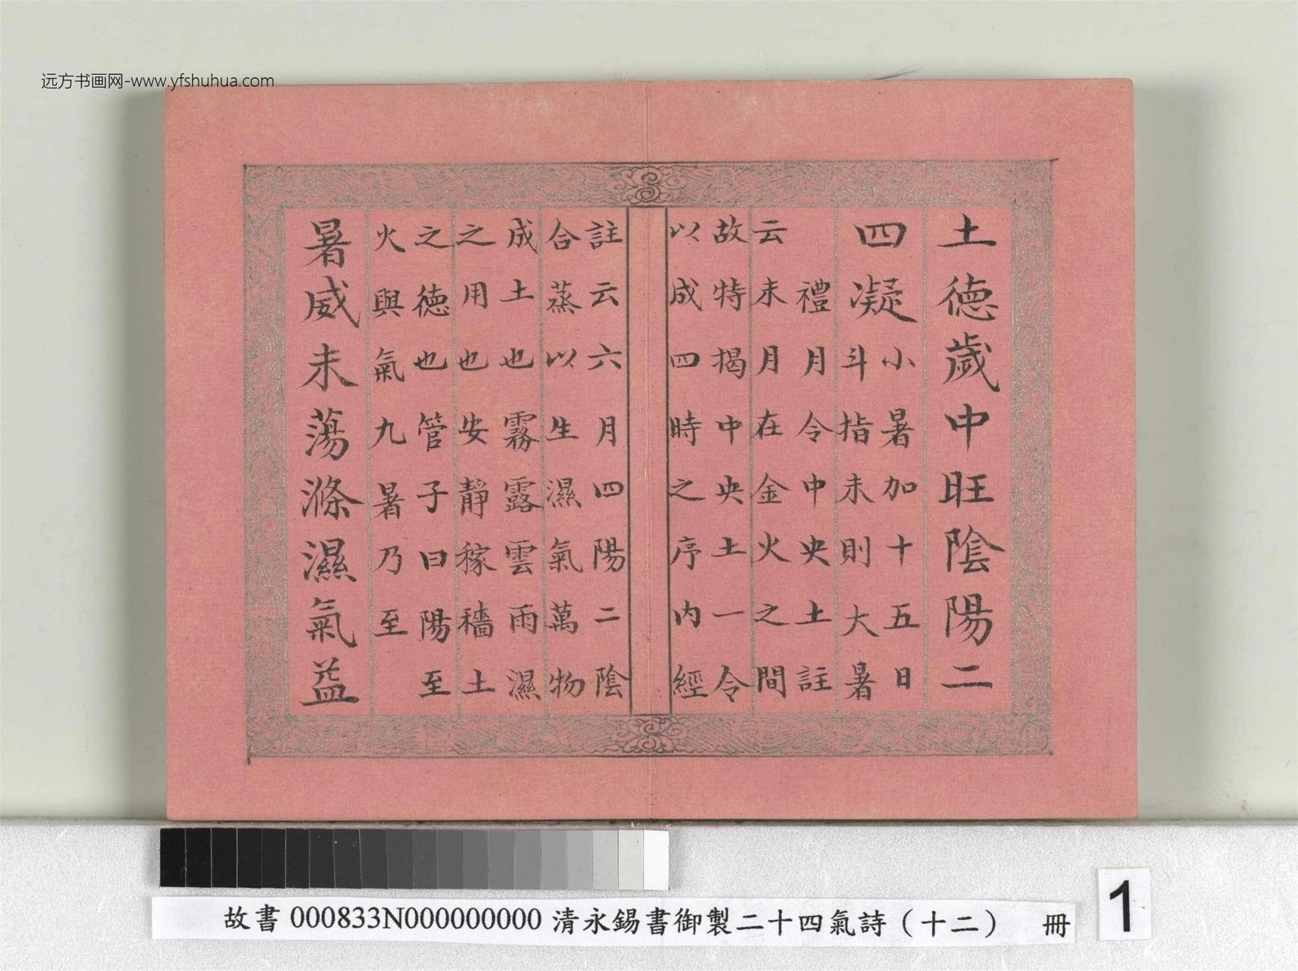 远方书画网-www.yfshuhua.com
土德歲中旺陰陽二
四凝
小暑加十五日
斗指未則大暑
禮月令中央土註
云未月在金火之間
故特揭中央土一令
以成四時之序內經
註云六月四陽二陰
合蒸以生濕氣萬物
成土也霧露雲雨濕
之用也安靜稼穡土
之德也管子曰陽至
火與氣九暑乃至
暑威未蕩滌濕氣益
故書 000833N000000000 清永錫書御製二十四氣詩（十二） 冊
1